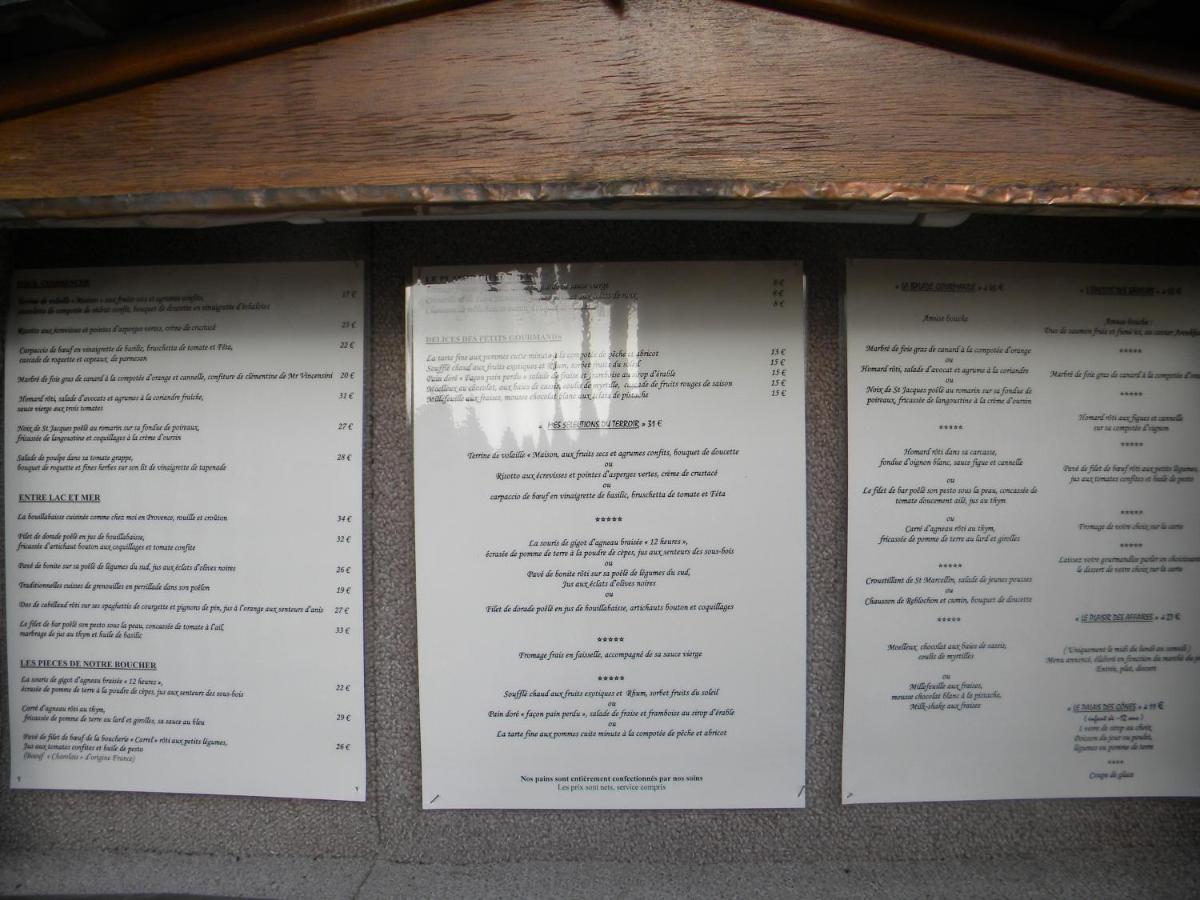 POUR COMMENCER
Terrine de volaille « Maison » aux fruits secs et agrumes confits, 17 €
bouquet de doucette en vinaigrette d'échalotes
Risotto aux écrevisses et pointes d'asperges vertes, crème de crustacé 23 €
Carpaccio de bœuf en vinaigrette de basilic, bruschetta de tomate et Fêta, 22 €
salade de roquette et copeaux, de parmesan
Marbré de foie gras de canard à la compotée d'orange et cannelle, confiture de clémentine de Mr Vincensini 20 €
Homard rôti, salade d'avocats et agrumes à la coriandre fraîche, 31 €
sauce vierge aux trois tomates
Noix de St Jacques poêlé au romarin sur sa fondue de poireaux, 27 €
fricassée de langoustine et coquillages à la crème d'oursin
Salade de poulpe dans sa tomate grappe, 28 €
bouquet de roquette et fines herbes sur son lit de vinaigrette de tapenade
ENTRE LAC ET MER
La bouillabaisse cuisinée comme chez moi en Provence, rouille et croûton 34 €
Filet de dorade poêlé en jus de bouillabaisse, 32 €
fricassée d'artichaut bouton aux coquillages et tomate confite
Pavé de bonite sur sa poêlé de légumes du sud, jus aux éclats d'olives noires 26 €
Traditionnelles cuisses de grenouilles en persillade dans son poêlon 19 €
Dos de cabillaud rôti sur ses spaghettis de courgette et pignons de pin, jus à l'orange aux senteurs d'anis 27 €
Le filet de bar poêlé son pesto sous la peau, concassée de tomate à l'ail, 33 €
marbrage de jus au thym et huile de basilic
LES PIECES DE NOTRE BOUCHER
La souris de gigot d'agneau braisée « 12 heures », 22 €
écrasée de pomme de terre à la poudre de cèpes, jus aux senteurs des sous-bois
Carré d'agneau rôti au thym, 29 €
fricassée de pomme de terre au lard et girolles, sa sauce au bleu
Pavé de filet de bœuf de la boucherie « Carrel » rôti aux petits légumes, 26 €
Jus aux tomates confites et huile de pesto
(Bœuf « Charolais » d'origine France)
sauce vierge 8 €
8 €
8 €
DELICES DES PETITS GOURMANDS
La tarte fine aux pommes cuite minute à la compotée de pêche et abricot 15 €
Soufflé chaud aux fruits exotiques et Rhum, sorbet fruits du soleil 15 €
Pain doré « Façon pain perdu » salade de fraise et framboise au sirop d'érable 15 €
Moelleux au chocolat, aux baies de cassis, coulis de myrtille, cascade de fruits rouges de saison 15 €
Millefeuille aux fraises, mousse chocolat blanc aux éclats de pistache 15 €
« MES SELECTIONS DU TERROIR » 31 €
Terrine de volaille « Maison, aux fruits secs et agrumes confits, bouquet de doucette
ou
Risotto aux écrevisses et pointes d'asperges vertes, crème de crustacé
ou
carpaccio de bœuf en vinaigrette de basilic, bruschetta de tomate et Fêta
*****
La souris de gigot d'agneau braisée « 12 heures »,
écrasée de pomme de terre à la poudre de cèpes, jus aux senteurs des sous-bois
ou
Pavé de bonite rôti sur sa poêlé de légumes du sud,
Jus aux éclats d'olives noires
ou
Filet de dorade poêlé en jus de bouillabaisse, artichauts bouton et coquillages
*****
Fromage frais en faisselle, accompagné de sa sauce vierge
*****
Soufflé chaud aux fruits exotiques et Rhum, sorbet fruits du soleil
ou
Pain doré « façon pain perdu », salade de fraise et framboise au sirop d'érable
ou
La tarte fine aux pommes cuite minute à la compotée de pêche et abricot
Nos pains sont entièrement confectionnés par nos soins
Les prix sont nets, service compris
« LA BALADE GOURMANDE » à
Amuse bouche
Marbré de foie gras de canard à la compotée d'orange
ou
Homard rôti, salade d'avocat et agrume à la coriandre
ou
Noix de St Jacques poêlé au romarin sur sa fondue de
poireaux, fricassée de langoustine à la crème d'oursin
*****
Homard rôti dans sa carcasse,
fondue d'oignon blanc, sauce figue et cannelle
ou
Le filet de bar poêlé son pesto sous la peau, concassée de
tomate doucement ailé, jus au thym
ou
Carré d'agneau rôti au thym,
fricassée de pomme de terre au lard et girolles
*****
Croustillant de St Marcellin, salade de jeunes pousses
ou
Chausson de Reblochon et cumin, bouquet de doucette
*****
Moelleux, chocolat aux baies de cassis,
coulis de myrtilles
ou
Millefeuille aux fraises,
mousse chocolat blanc à la pistache,
Milk-shake aux fraises
Amuse bouche :
Duo de saumon frais et fumé ici, au caviar
*****
Marbré de foie gras de canard à la compotée
*****
Homard rôti aux figues et cannelle
sur sa compotée d'oignon
*****
Pavé de filet de bœuf rôti aux petits légumes,
jus aux tomates confites et huile de pesto
*****
Fromage de votre choix sur la carte
*****
Laissez votre gourmandise parler en choisissant
le dessert de votre choix sur la carte
« LE PLAISIR DES AFFAIRES » à 23 €
( Uniquement le midi du lundi au samedi )
Menu annoncé, élaboré en fonction du marché du
Entrée, plat, dessert
« LE PALAIS DES GÔNES » à 11 €
( enfant de -12 ans )
1 verre de sirop au choix,
Poisson du jour ou poulet,
légumes ou pomme de terre
****
Coupe de glace